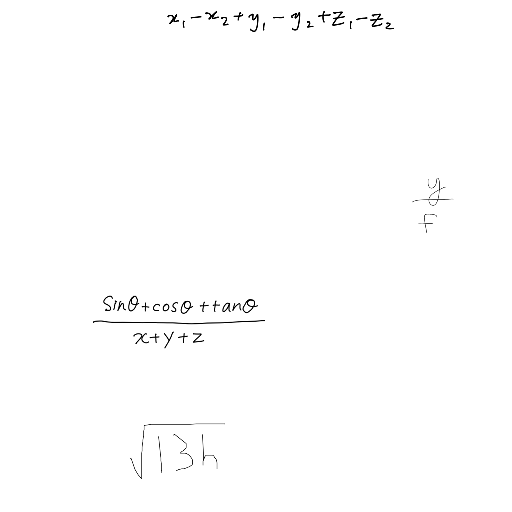 x₁-x₂+y₁-y₂+z₁-z₂
y
F
sinθ+cosθ+tanθ
x+y+z
√13h